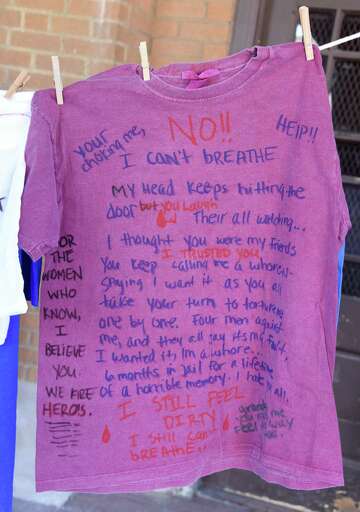 NO!!
HElP!!
your choking me,
I can't BREATHE
MY HEAD KEEPS hitting the
door but you laugh
Their all watching...
I thought you were my friends
I TRUSTED YOU,
You keep calling me a whore..
saying I want it as you all
take your turn to torture me
one by one. Four men against
me, and they all say its my fault,
I wanted it, Im a whore...
6 months in Jail for a lifetime
of a horrible memory. I hate it all.
I STILL FEEL
DIRTY
I Still can't
BREATHE..
FOR
THE
WOMEN
WHO
KNOW,
I
BELIEVE
YOU.
WE ARE
HEROIS.